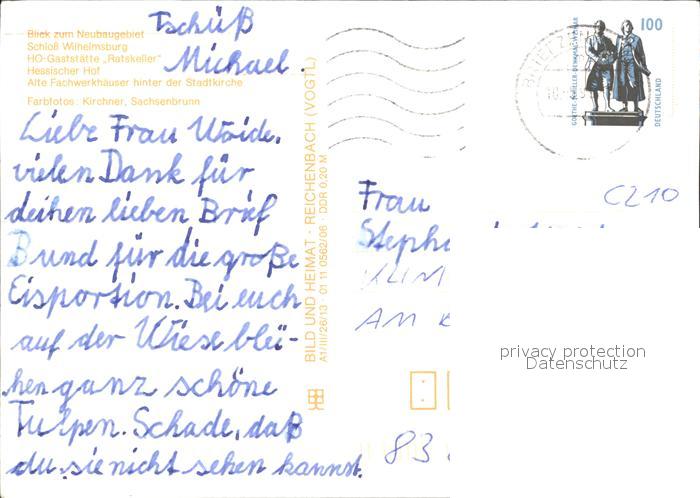 Tschüß
Michael.
Blick zum Neubaugebiet
Schloß Wilhelmsburg
HO-Gaststätte „Ratskeller"
Hessischer Hof
Alte Fachwerkhäuser hinter der Stadtkirche
Farbfotos: Kirchner, Sachsenbrunn
Liebe Frau Woide,
vielen Dank für
deihen lieben Brief
B und für die große
Eisportion. Bei euch
auf der Wiese blü-
hen ganz schöne
Tulpen. Schade, daß
du sie nicht sehen kannst.
BILD UND HEIMAT · REICHENBACH (VOGTL)
A1/III/26/13 · 01 11 0562/06 · DDR 0,20 M
GOETHE-SCHILLER-DENKMAL WEIMAR
100
DEUTSCHLAND
C210
Frau
Steph
KLIN
AM
83
privacy protection
Datenschutz